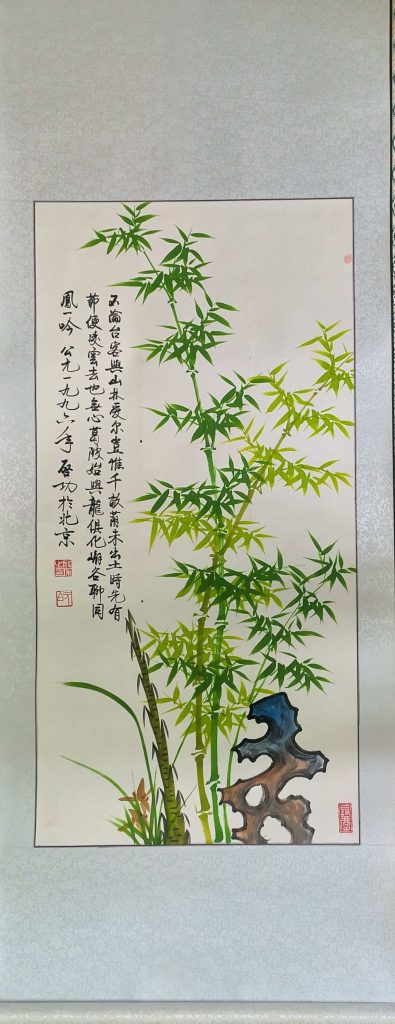 不論台閣與山林爱尔豈惟千畝蔭未出土時先有
節便凌雲去也無心葛陂始與龍俱化嶰谷聊同
鳳一吟 公元一九九六年 啓功於北京